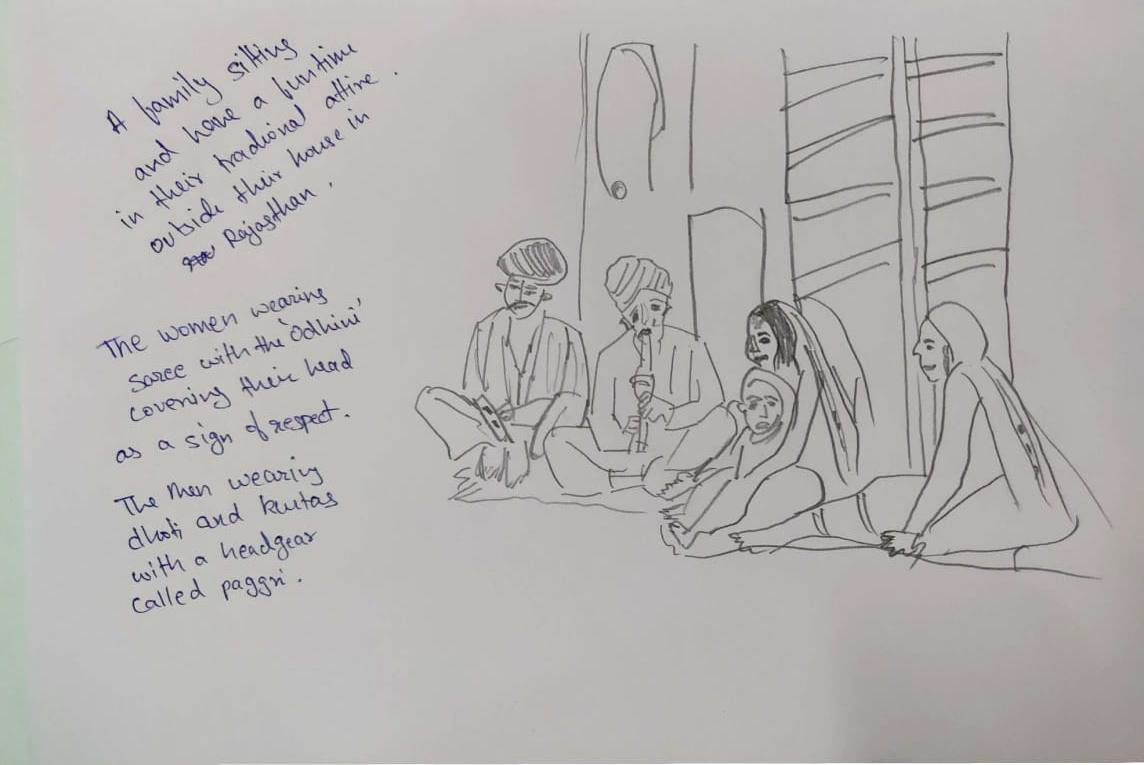 A family sitting
and have a fun time
in their tradional attire.
outside their house in
Rajasthan.
The women wearing
saree with the 'Odhini'
covering their head
as a sign of respect.
The Men wearing
dhoti and kurtas
with a headgear
called paggri.